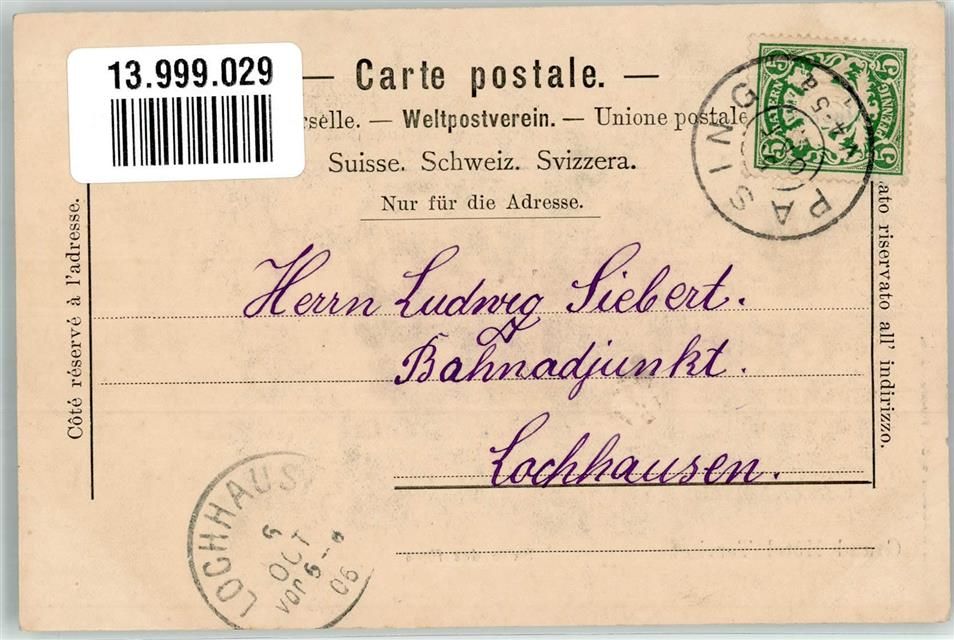 13.999.029
— Carte postale. —
rselle. — Weltpostverein. — Unione postale
Suisse. Schweiz. Svizzera.
Nur für die Adresse.
Côté réservé à l'adresse.
ato riservato all' indirizzo.
BAYERN
5 PFENNIG 5
PASING
Herrn Ludwig Siebert.
Bahnadjunkt.
Lochhausen.
LOCHHAUS
6
OCT
VOR 6-
06